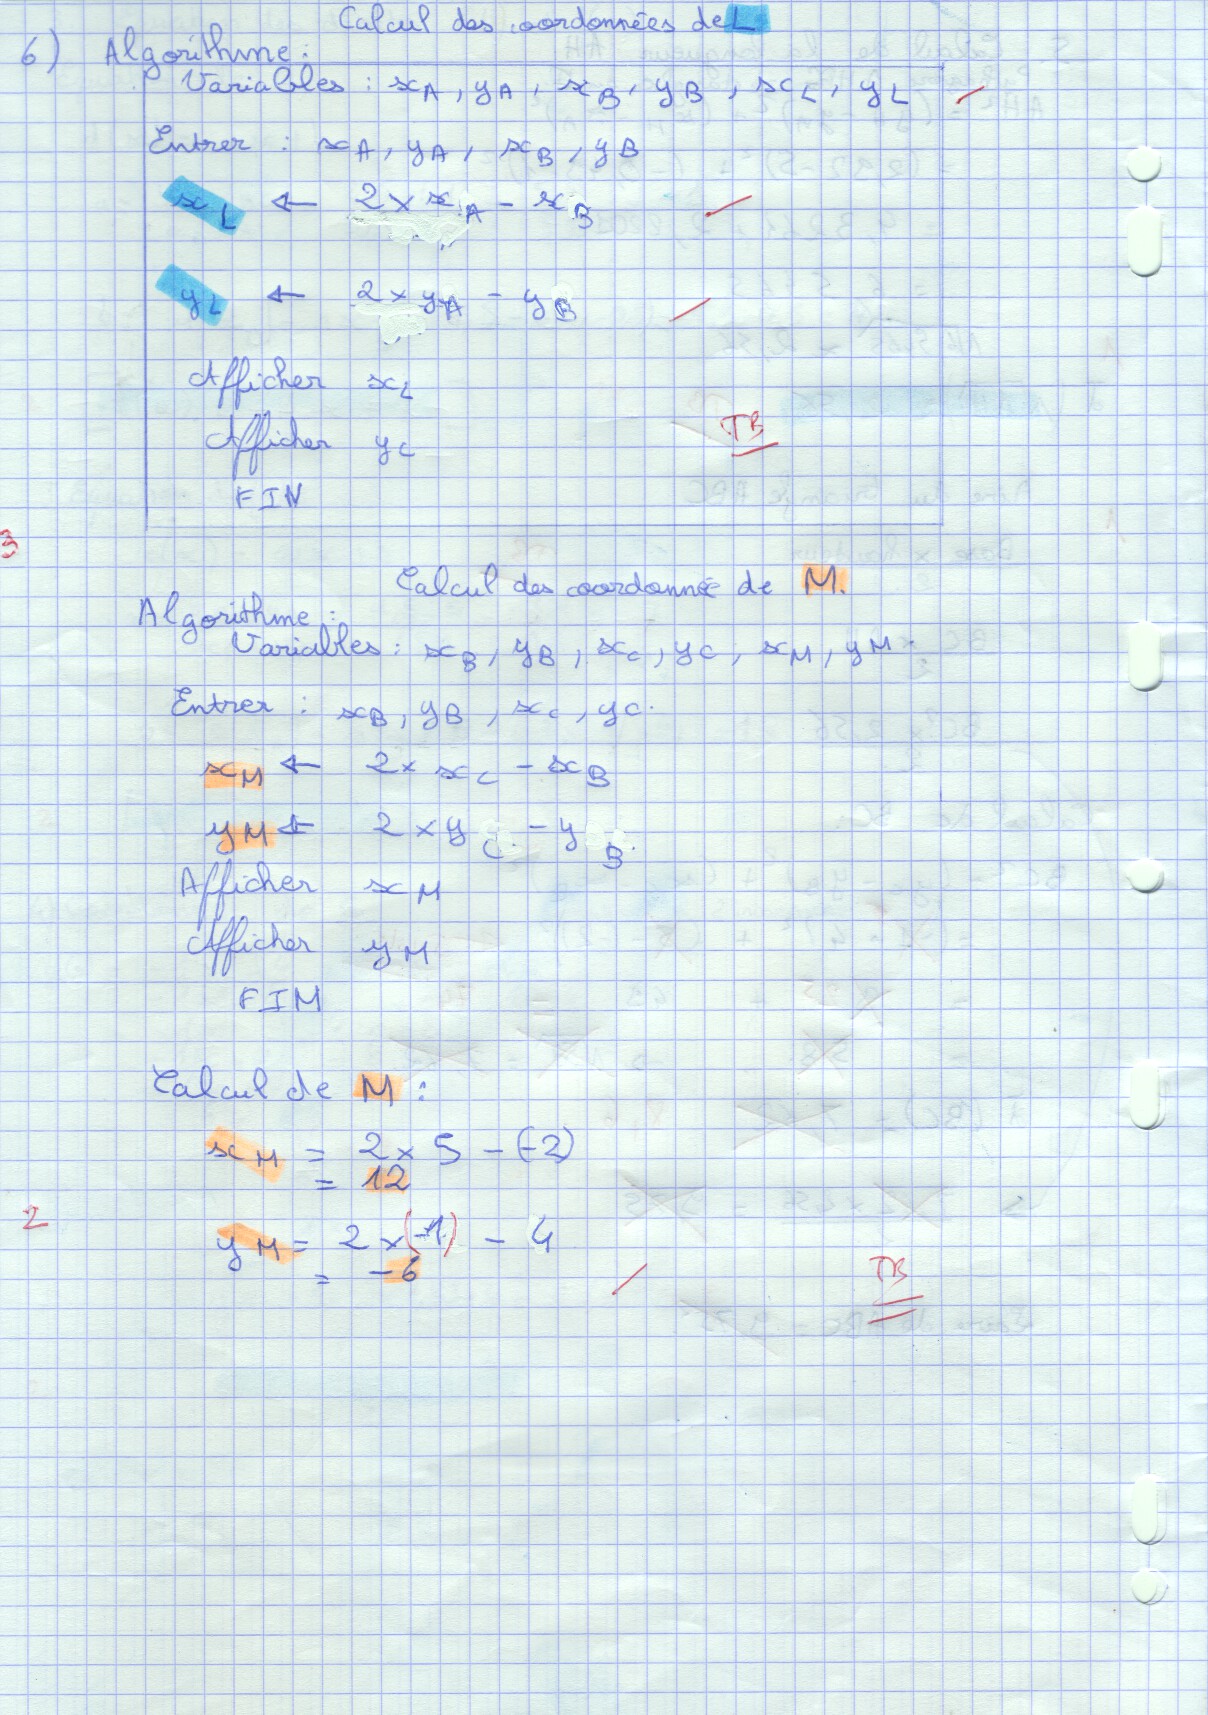 Calcul des coordonnées de L
6) Algorithme :
Variables : xA, yA, xB, yB, xL, yL
Entrer : xA, yA, xB, yB
xL ← 2 × xA - xB
yL ← 2 × yA - yB
Afficher xL
Afficher yL
TB
FIN
3
Calcul des coordonnée de M.
Algorithme :
Variables : xB, yB, xC, yC, xM, yM.
Entrer : xB, yB, xC, yC.
xM ← 2 × xC - xB
yM ← 2 × yC - yB.
Afficher xM
Afficher yM
FIN
Calcul de M :
xM = 2 × 5 - (-2)
= 12
2
yM = 2 × (-1) - 4
= -6
TB